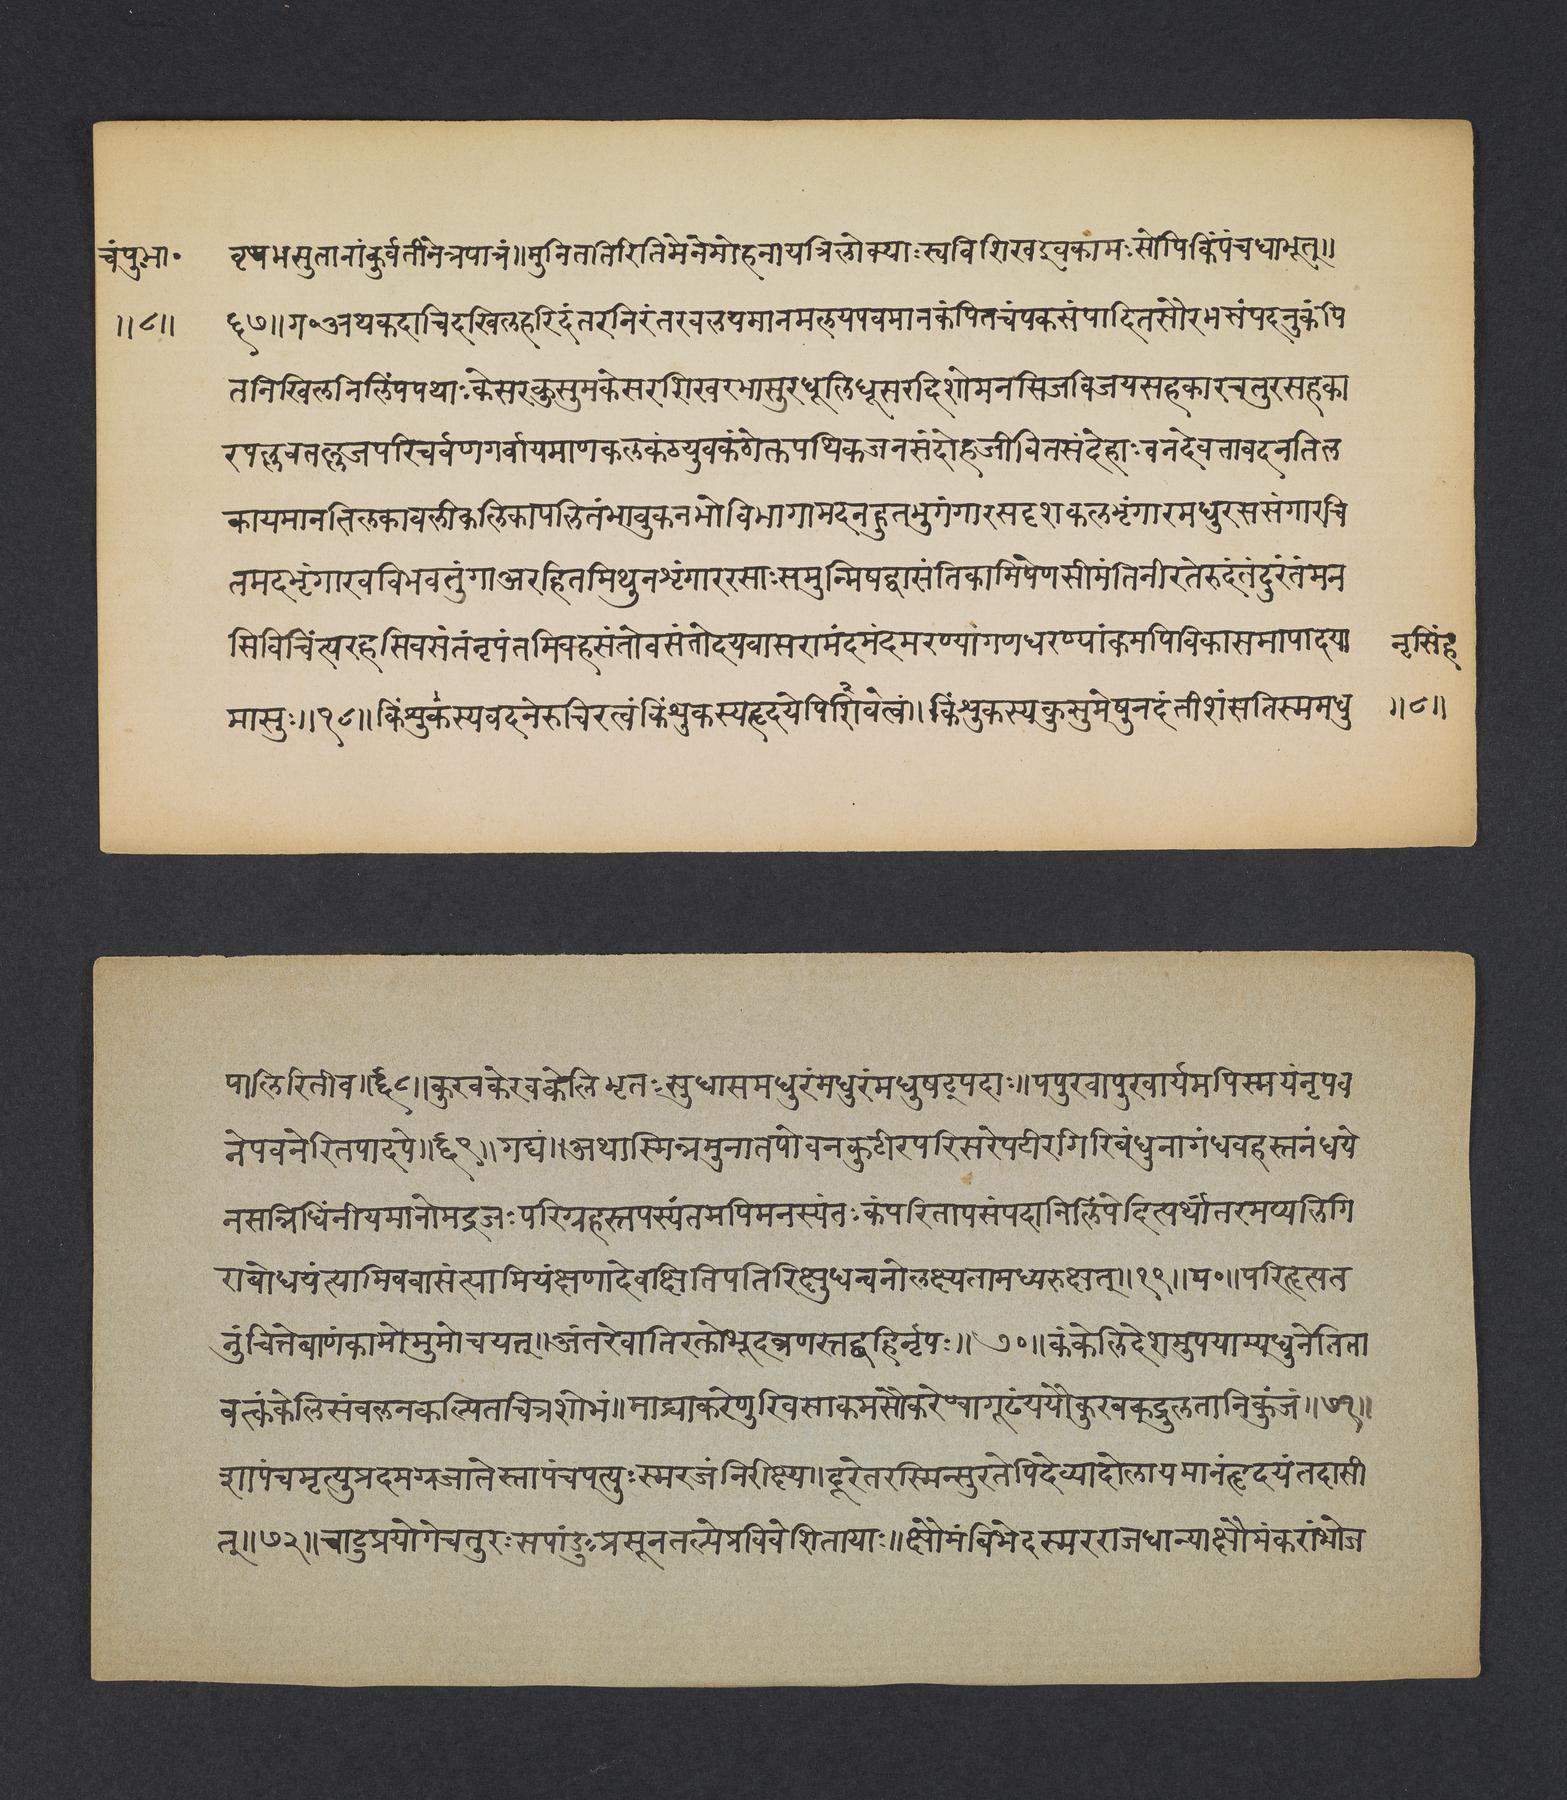 चंपुभा॰ वृषभसुतानांकुर्वतीनेत्रपात्रं॥मुनिततिरितिमेनेमोहनायत्रिलोक्याःस्वविशिखइवकामःसोपिकिंपंचधाभूत्॥
॥८॥ ६७॥ग॰अथकदाचिदखिलहरिदंतरनिरंतरवलयमानमलयपवमानकंपितचंपकसंपादितसौरभसंपदनुकंपि
तनिखिलनिलिंपपथाःकेसरकुसुमकेसरशिखरभासुरधूलिधूसरदिशोमनसिजविजयसहकारचतुरसहका
रपल्लवतल्लजपरिचर्वणगर्वायमाणकलकंठयुवकंठोक्तपथिकजनसंदोहजीवितसंदेहाःवनदेवतावदनतिल
कायमानतिलकावलीकलिकापलितंभावुकनभोविभागामदनहुतभुगंगारसदृशकलभृंगारमधुरससंगारचि
तमदभृंगारवविभवतुंगाअरहितमिथुनशृंगाररसाःसमुन्मिषद्वासंतिकामिषेणसीमंतिनीरतेरुदंतंदुरंतंमन
सिविचिंत्यरहसिवसंतंनृपंतमिवहसंतोवसंतोदयवासरामंदमंदमरण्यांगणधरण्यांकमपिविकासमापादया नृसिंह
मासुः॥१८॥किंशुकस्यवदनेरुचिरत्वंकिंशुकस्यहृदयेपिशिवेत्वं॥किंशुकस्यकुसुमेषुनदंतीशंसतिस्ममधु ॥८॥
पालिरितीव॥६८॥कुरवकेरवकेलिभृतःसुधासमधुरंमधुरंमधुषट्पदाः॥पपुरवापुरवार्यमपिस्मयंनृपव
नेपवनेरितपादपे॥६९॥गद्यं॥अथास्मिन्नमुनातपोवनकुटीरपरिसरेपटीरगिरिबंधुनागंधवहस्तनंधये
नसन्निधिंनीयमानोमद्रजःपरिग्रहस्तपस्यंतमपिमनस्यंतःकंपरितापसंपदानिलिंपेदित्यर्थांतरमप्यलिगि
राबोधयंत्यामिववासंत्यामियंक्षणादेवक्षितिपतिरिक्षुधन्वनोलक्ष्यतामध्यरुक्षत्॥१९॥प॰॥परिहृत्यत
नुंचित्तेबाणंकामोमुमोचयत्॥अंतरेवातिरक्तोभूदव्रणस्तद्बहिर्नृपः॥७०॥कंकेलिदेशमुपयाम्यधुनेतिता
वत्कंकेलिसंवलनकल्पितचित्रशोभं॥माद्र्याकरेणुरिवसाकमसौकरेण्वागूढंययौकुरबकद्रुलतानिकुंजं॥७१॥
शापंचमृत्युप्रदमग्रजातेस्तापंचपत्युःस्मरजंनिरीक्ष्य॥दूरेतरस्मिन्सुरतेपिदेव्यादोलायमानंहृदयंतदासी
त्॥७२॥चाटुप्रयोगेचतुरःसपांडुःप्रसूनतल्पेप्रविवेशितायाः॥क्षौमंबिभेदस्मरराजधान्याक्षौमंकरांभोज